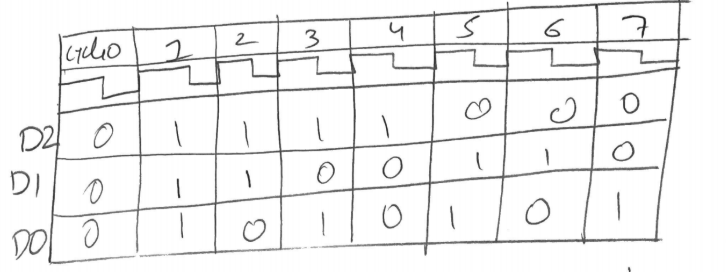 cycle0 1 2 3 4 5 6 7
D2 0 1 1 1 1 0 0 0
D1 0 1 1 0 0 1 1 0
D0 0 1 0 1 0 1 0 1